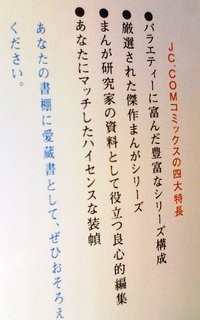 JC.COMコミックスの四大特長
●バラエティーに富んだ豊富なシリーズ構成
●厳選された傑作まんがシリーズ
●まんが研究家の資料として役立つ良心的編集
●あなたにマッチしたハイセンスな装幀
あなたの書棚に愛蔵書として、ぜひおそろえ
ください。